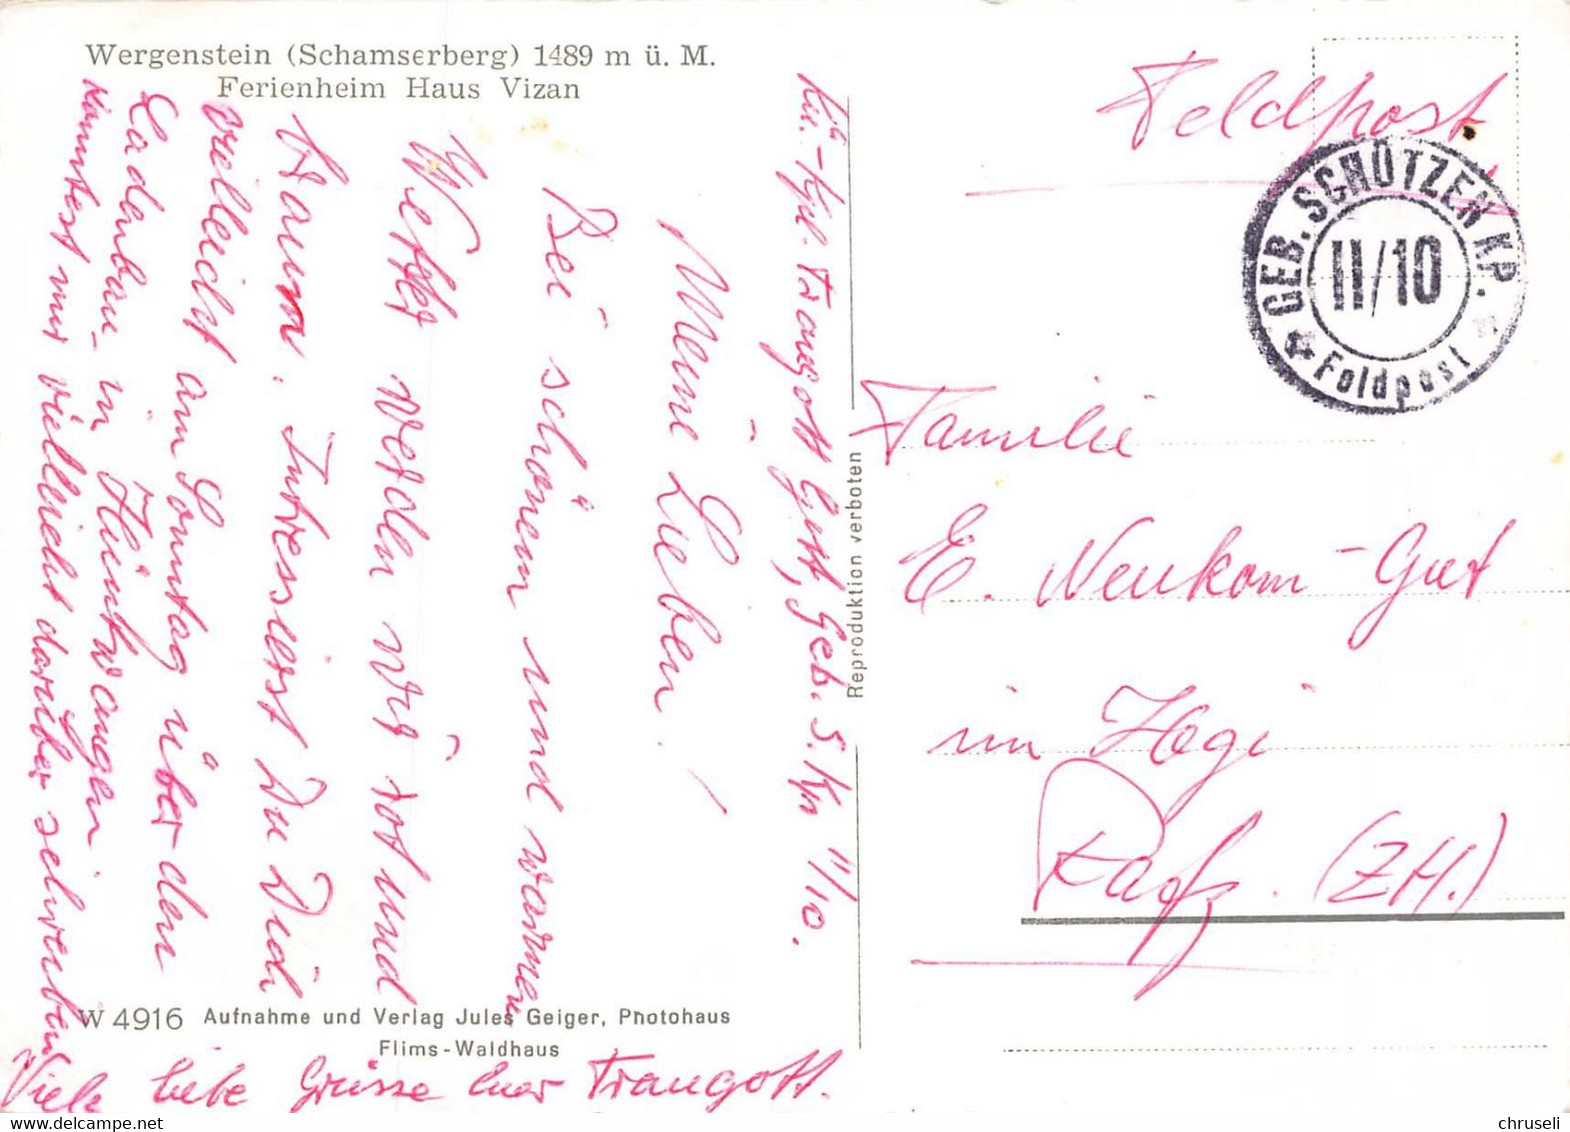 Wergenstein (Schamserberg) 1489 m ü. M.
Ferienheim Haus Vizan
Kü.-Gef. Traugott Gut, Geb. S. Kp II/10.
Meine Lieben!
Bei schönem und warmen
Wetter werden wir rot und
braun. Intressierst Du Dich
vielleicht am Sonntag über den
Ladenbau in Hüntwangen
könntest mir vielleicht darüber schreiben
Viele liebe Grüsse Euer Traugott.
W 4916 Aufnahme und Verlag Jules Geiger, Photohaus
Flims-Waldhaus
Reproduktion verboten
Feldpost
GEB. SCHÜTZEN KP.
II/10
Feldpost
Familie
E. Neukom-Gut
im Hegi
Rafz. (ZH.)
chruseli